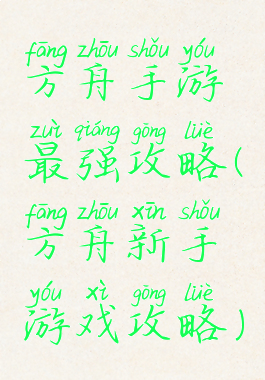 fāng zhōu shǒu yóu
方舟手游
zuì qiáng gōng lüè
最强攻略(
fāng zhōu xīn shǒu
方舟新手
yóu xì gōng lüè
游戏攻略)